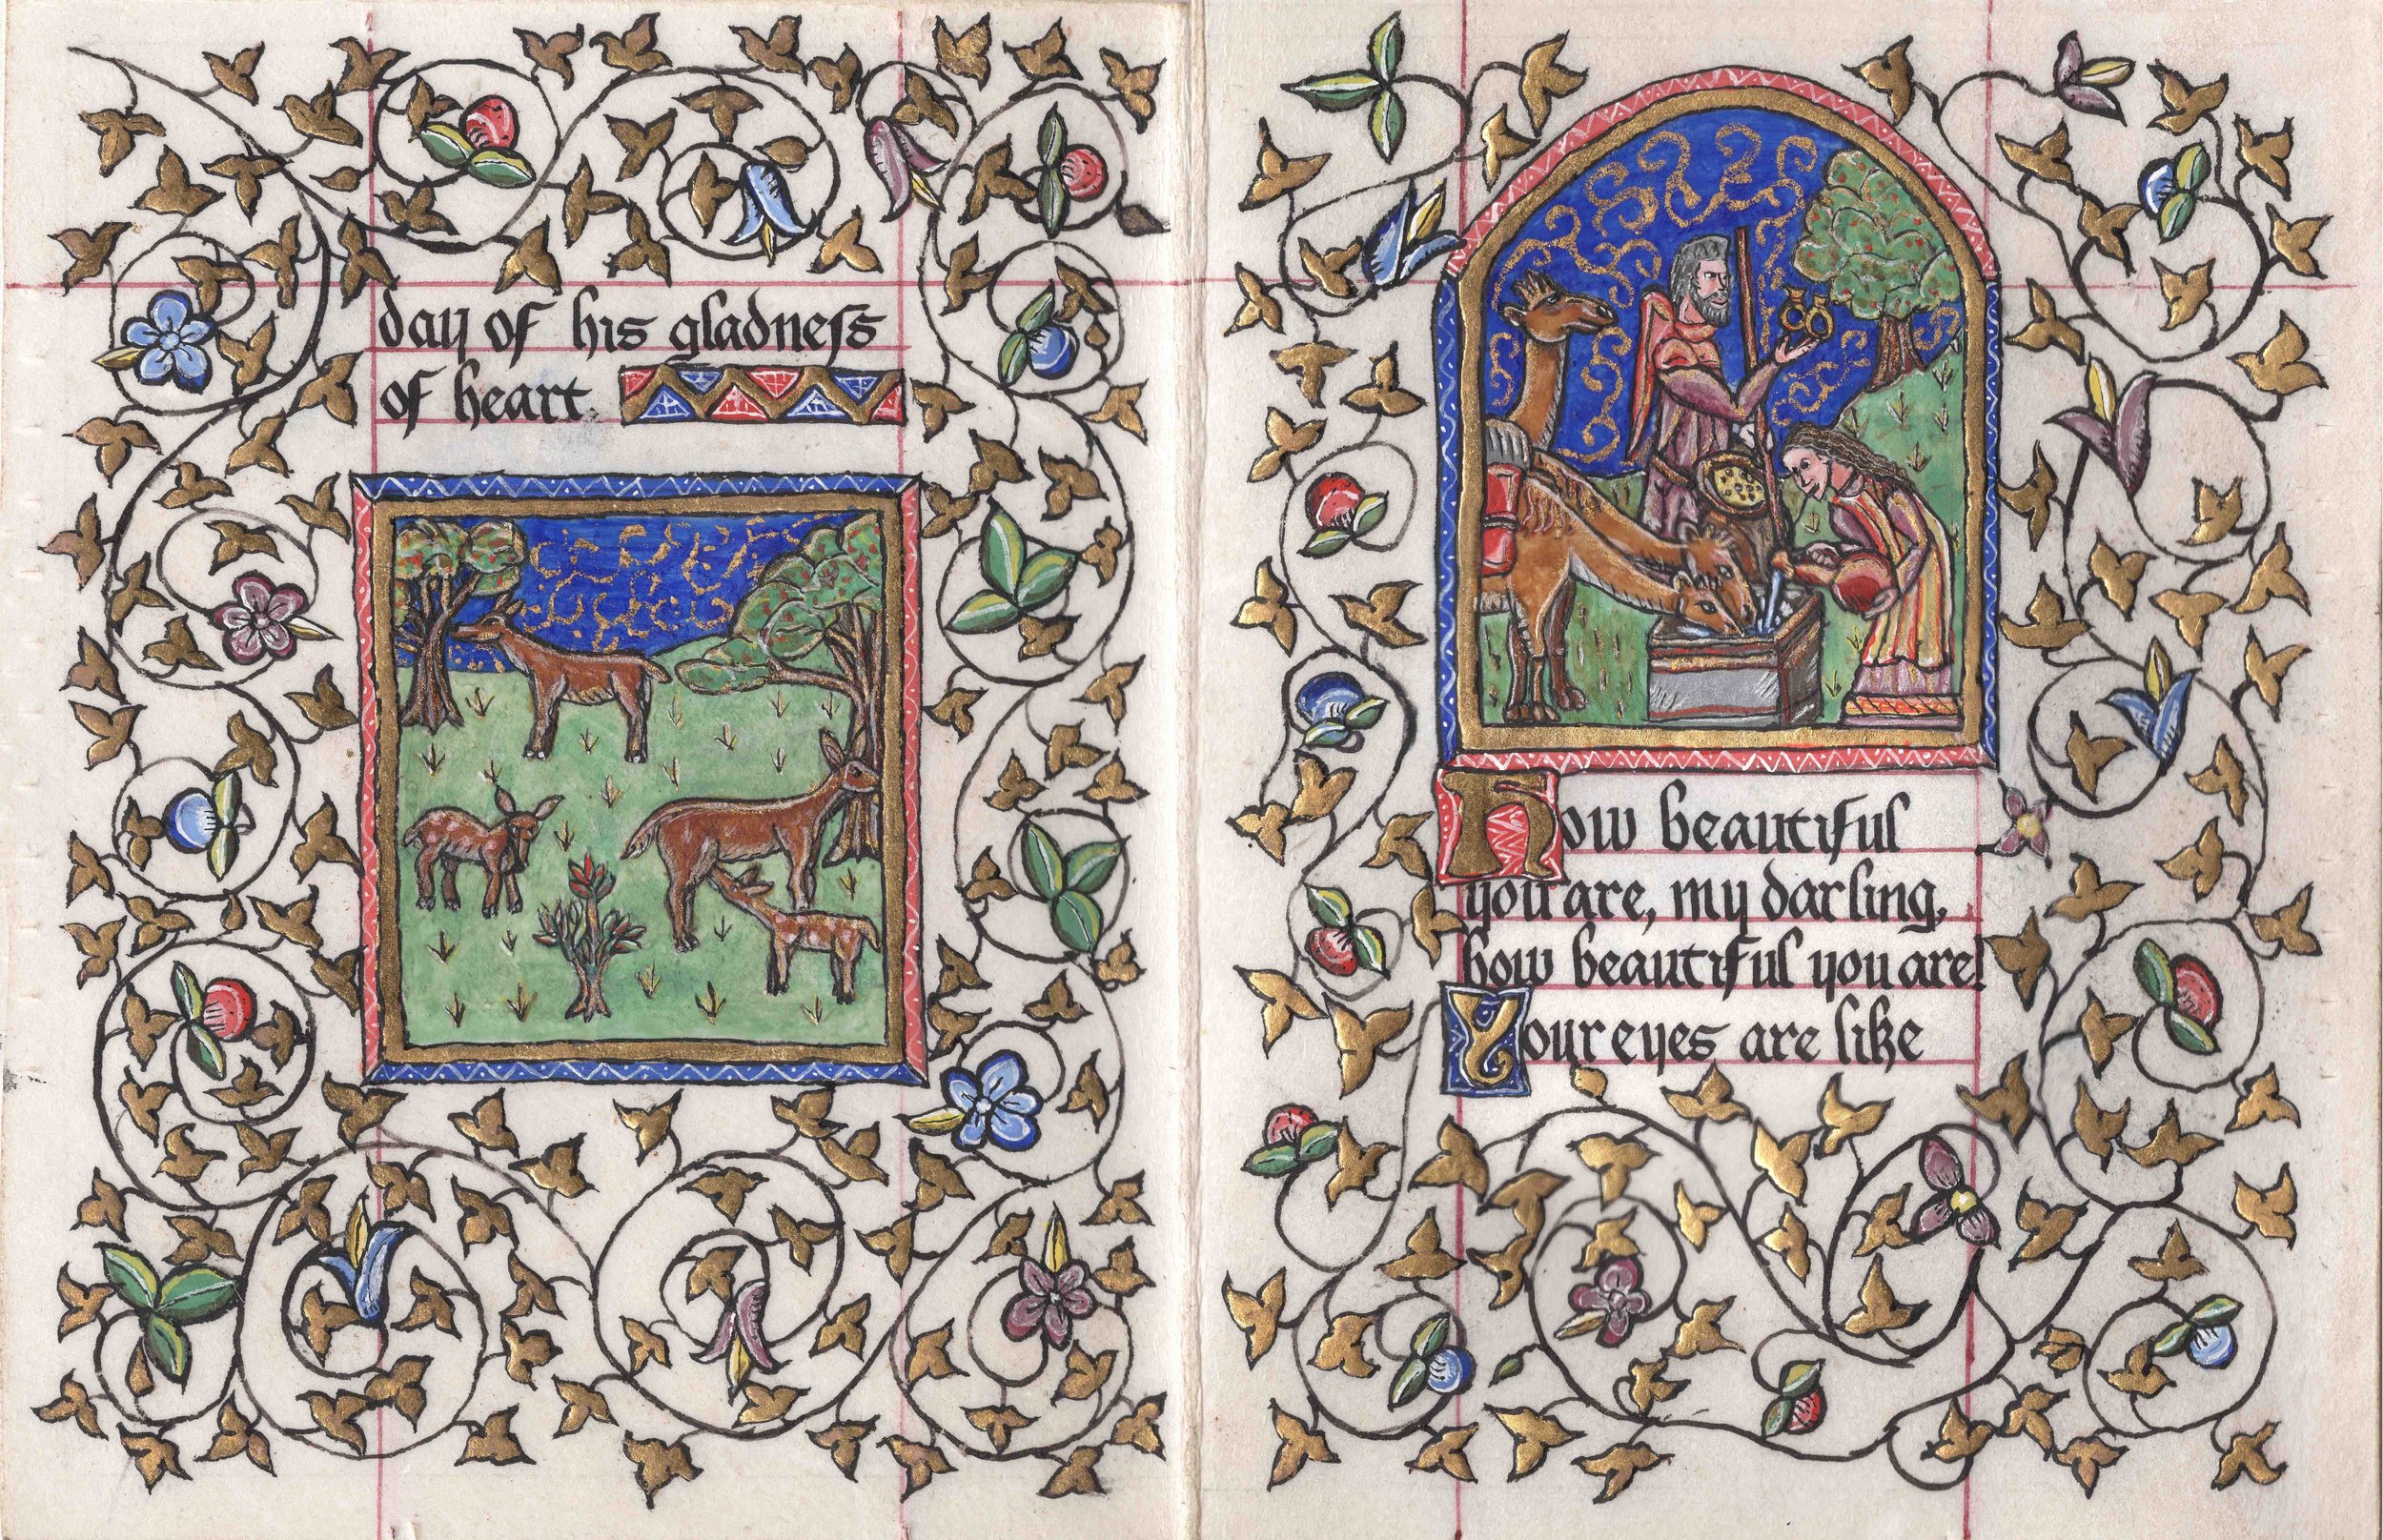 day of his gladneſs
of heart.
How beautiful
you are, my darling,
how beautiful you are!
Your eyes are like